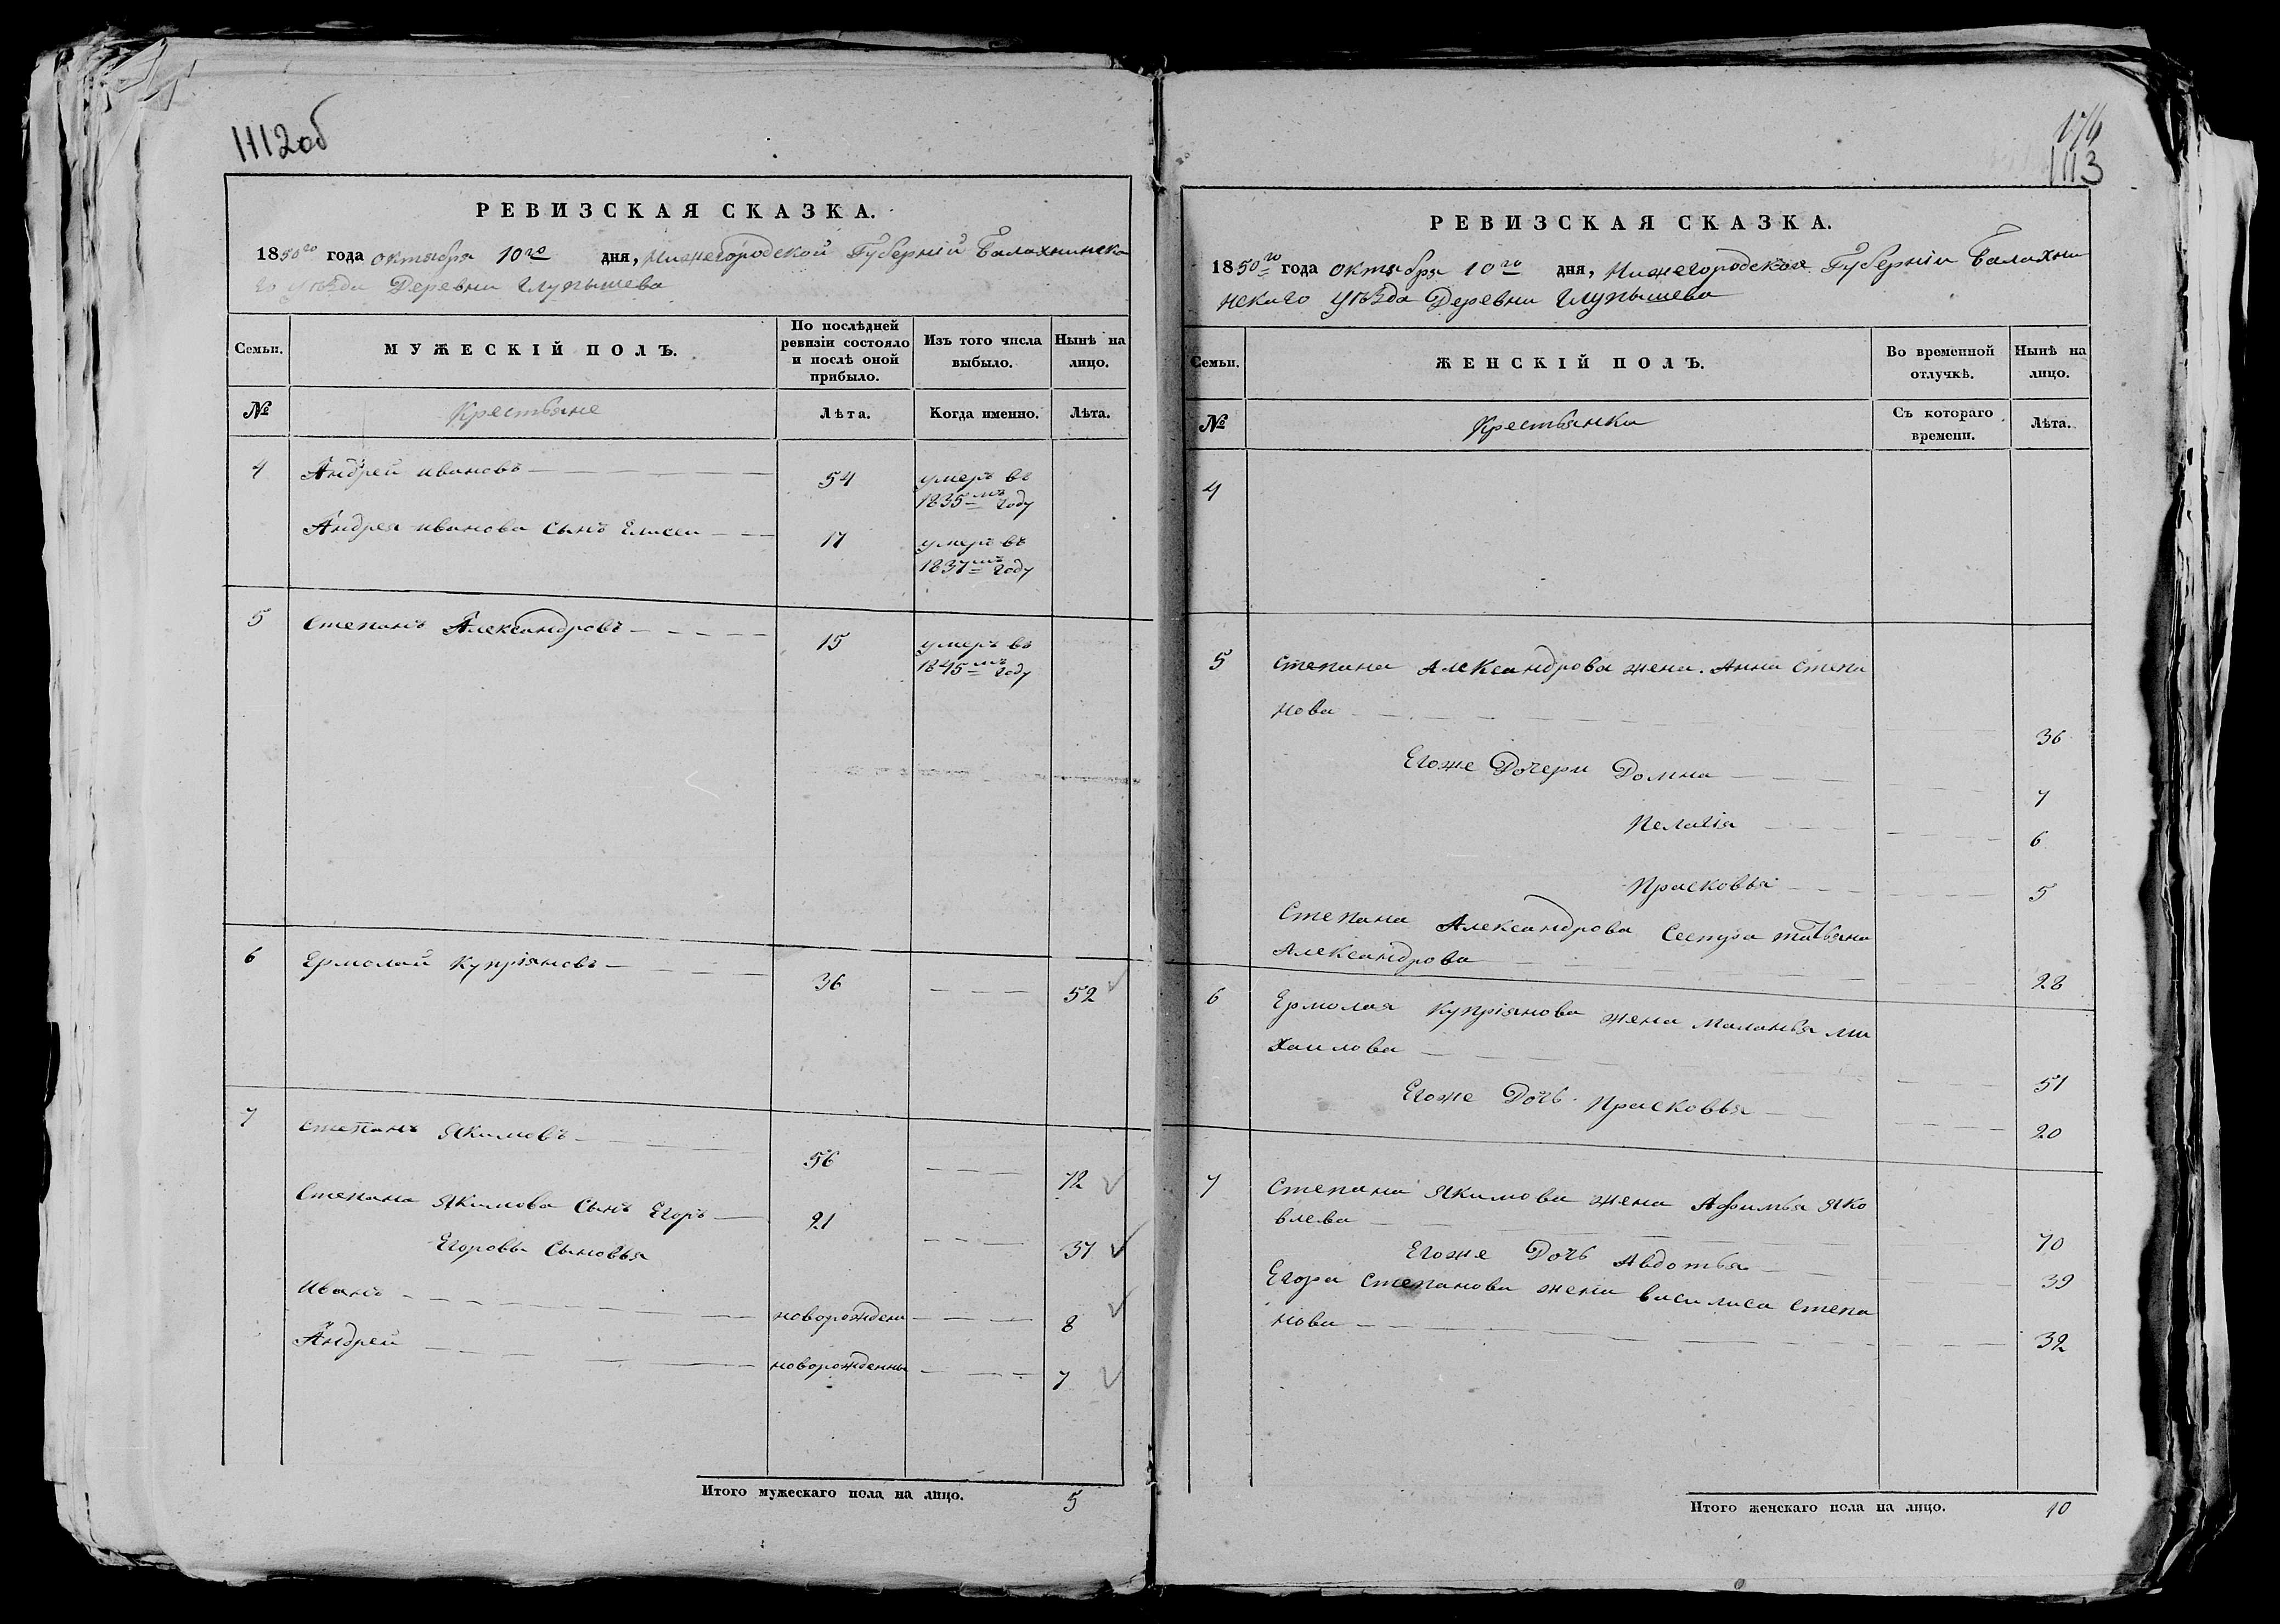 1112об
РЕВИЗСКАЯ СКАЗКА.
1850го года октября 10го дня, Нижегородской Губерній Балахнинска
го уѣзда Деревни Глупышева
Семьи.
МУЖЕСКІЙ ПОЛЪ.
По послѣдней ревизіи состояло и послѣ оной прибыло.
Изъ того числа выбыло.
Нынѣ на лицо.
№
Крестьяне
Лѣта.
Когда именно.
Лѣта.
4 Андрей ивановъ 54 умеръ въ
1835мъ году
Андрея иванова сынъ Елисеи 17 умеръ въ
1837мъ году
5 Степанъ Александровъ 15 умеръ въ
1845мъ году
6 Ермолай Купріяновъ 36 52
7 Степанъ Якимовъ 56 72
Степана Якимова Сынъ Егоръ 21 37
Егоровы Сыновья
Иванъ новорожденъ 8
Андрей новорожденны 7
Итого мужескаго пола на лицо. 5
176
1113
РЕВИЗСКАЯ СКАЗКА.
1850го года октября 10го дня, Нижегородской Губерніи Балахни
нскаго уѣзда Деревни Глупышева
Семьи.
ЖЕНСКІЙ ПОЛЪ.
Во временной отлучкѣ.
Нынѣ на лицо.
№
Крестьянки
Съ котораго времени.
Лѣта.
4
5 Степана Александрова жена. Анна Степа
нова 36
Егоже Дочери Домна 7
Пелагія 6
Прасковья 5
Степана Александрова Сестра татьяна
Александрова 28
6 Ермолая Купріянова жена Маланья ми
хаилова 51
Егоже Дочь Прасковья 20
7 Степана Якимова жена Афимья Яко
влева 70
Егоже Дочь Авдотья 39
Егора Степанова жена василиса Степа
нова 32
Итого женскаго пола на лицо. 10